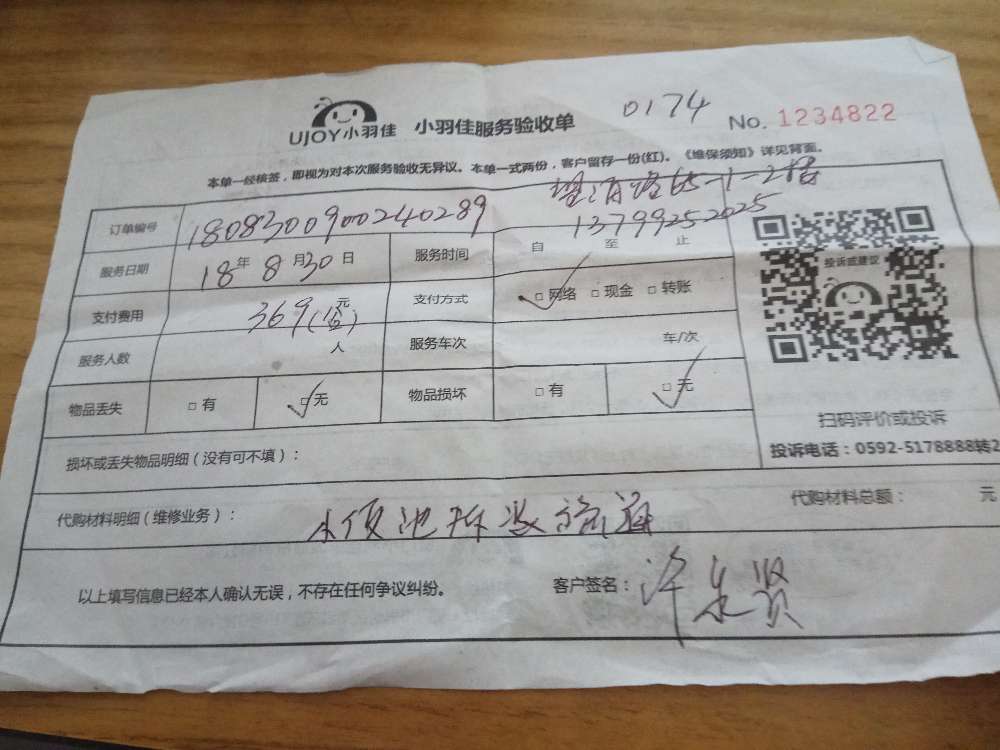 UJOY小羽佳 小羽佳服务验收单 0174 No. 1234822
本单一经核签，即视为对本次服务验收无异议。本单一式两份，客户留存一份(红)。《维保须知》详见背面。
订单编号 180830090024040289
13799252025
服务日期 18年8月30日 服务时间 自 至 止
投诉或建议
支付费用 369 元 支付方式 □网络 □现金 □转账
服务人数 人 服务车次 车/次
物品丢失 □有 □无 物品损坏 □有 □无
扫码评价或投诉
损坏或丢失物品明细（没有可不填）：
投诉电话：0592-5178888转2
代购材料明细（维修业务）： 代购材料总额： 元
以上填写信息已经本人确认无误，不存在任何争议纠纷。 客户签名：